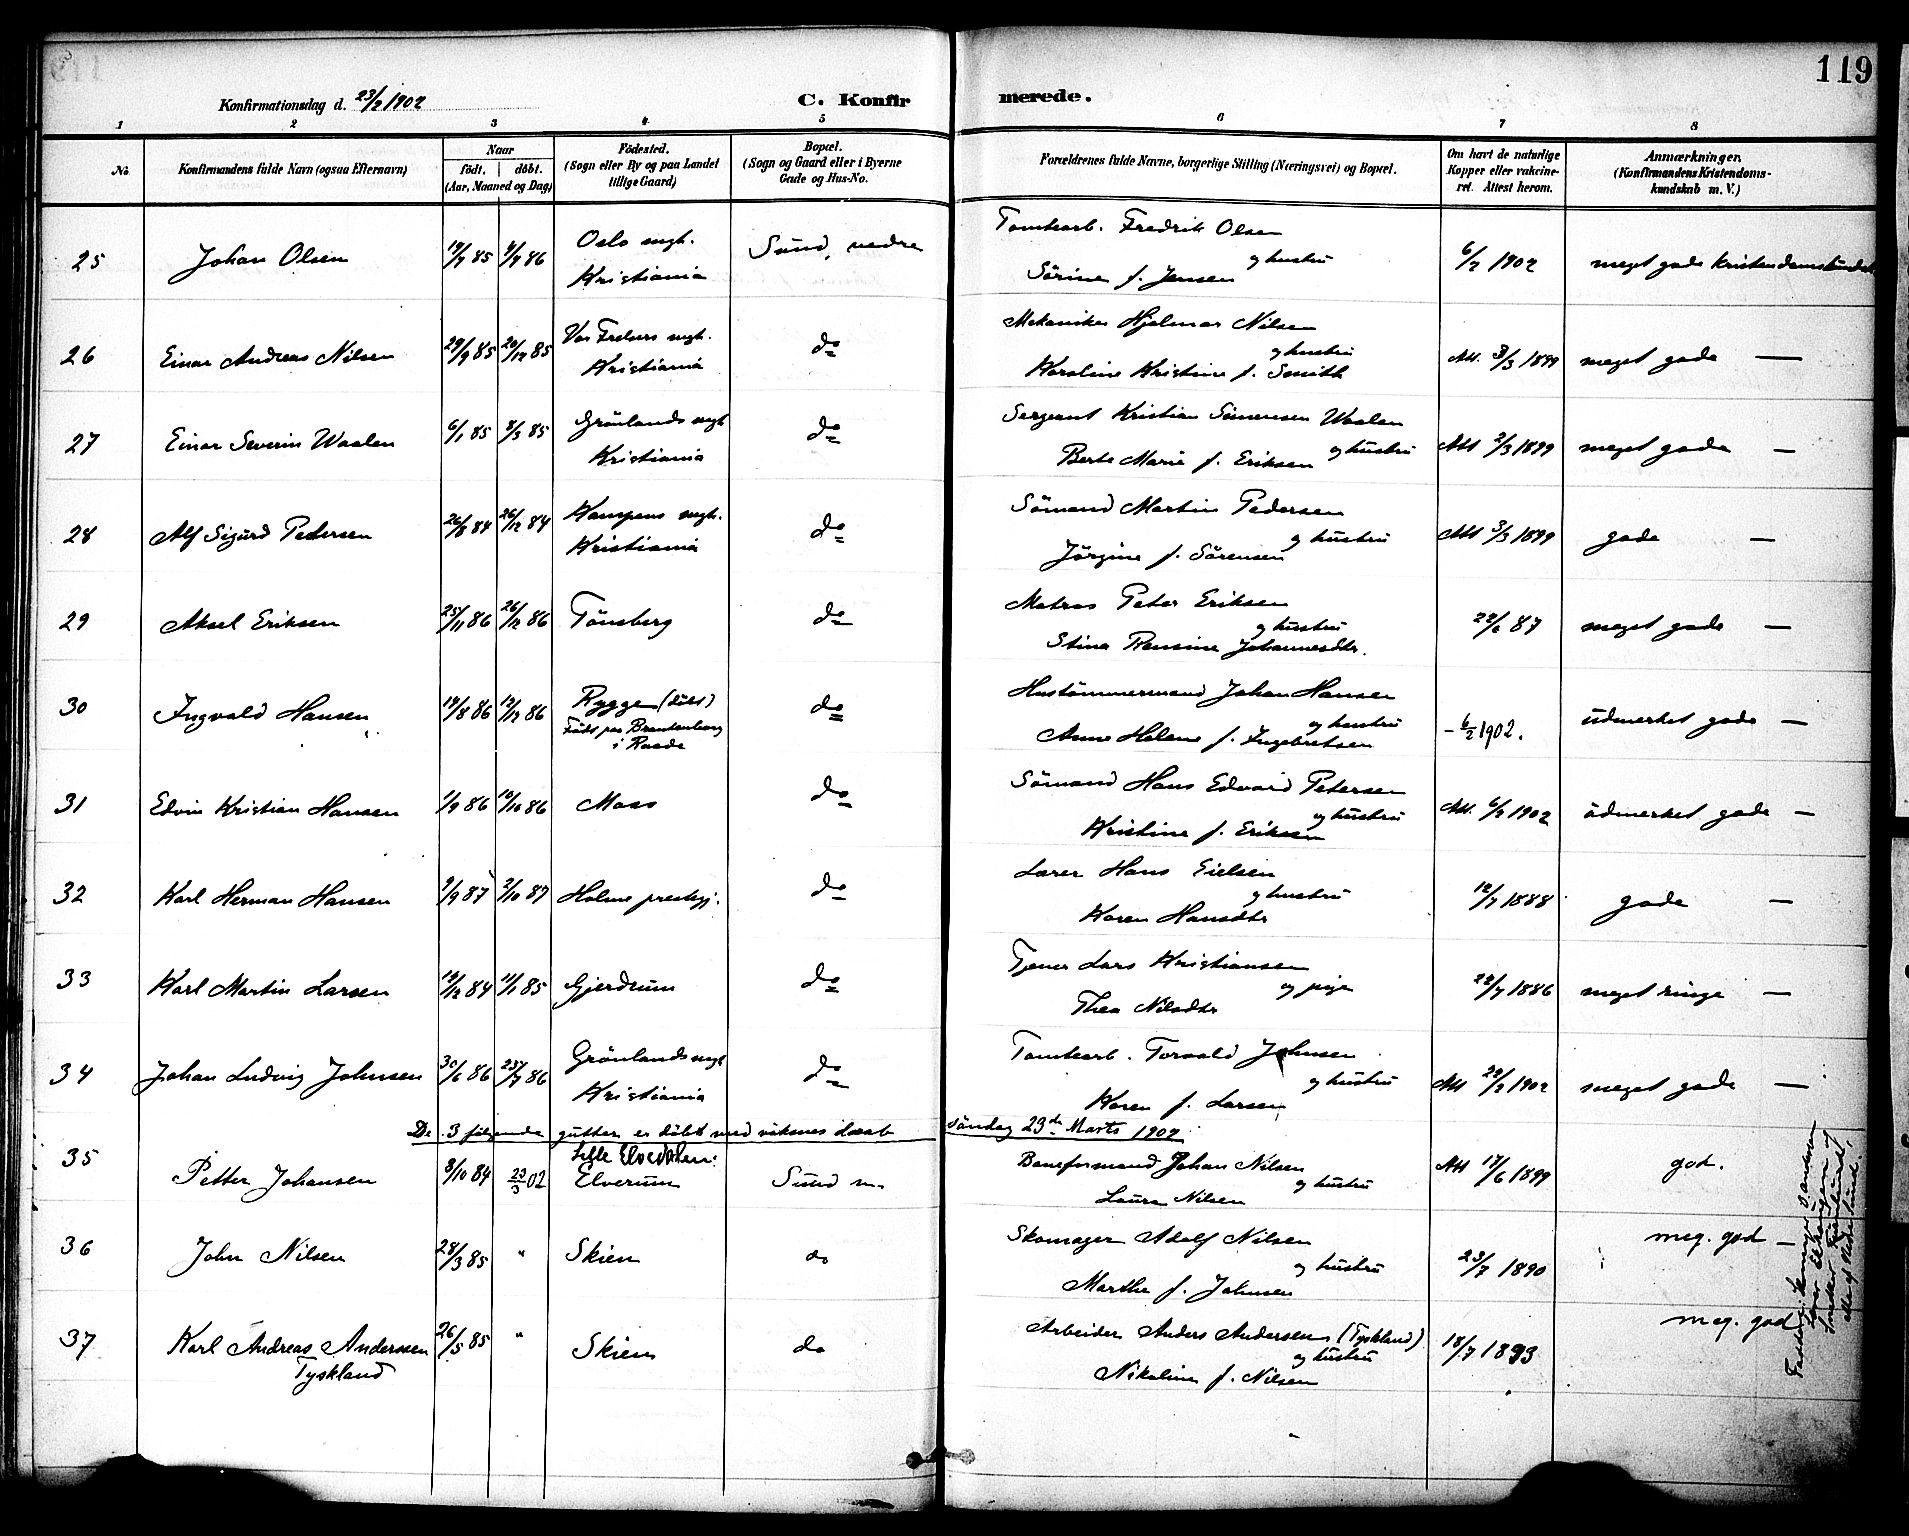 119
Konfirmationsdag d. 23/2 1902
C. Konfirmerede.
1 2 3 4 5 6 7 8
No
Konfirmandens fulde Navn (ogsaa Efternavn)
Naar født. døbt. (Aar, Maaned og Dag)
Fødested. (Sogn eller By og paa Landet tillige Gaard)
Bopæl. (Sogn og Gaard eller i Byerne Gade og Hus-No.
Forældrenes fulde Navne, borgerlige Stilling (Næringsvei) og Bopæl.
Om havt de naturlige Kopper eller vakcineret. Attest herom.
Anmærkninger. (Konfirmandens Kristendomskundskab m. V.)
25 Johan Olsen 85 86 Oslo mgh. Kristiania Sund, nedre
Tomtearb. Fredrik Olsen
og hustru
Sörine f. Jensen
6/2 1902 meget gode
26 Einar Andreas Nilsen 29/9 85 20/12 85 Vor Frelsers mgh. Kristiania do
Mekaniker Hjalmar Nilsen
og hustru
Karoline Kristine f. Smith
Att. 3/3 1899 meget gode —
27 Einar Severin Waalen 6/1 85 8/3 85 Grönlands mgh Kristiania do
Sergeant Kristian Simensen Waalen
og hustru
Berte Marie f. Eriksen
Att 2/3 1899 meget gode —
28 Alf Sigurd Pedersen 26/8 84 26/12 84 Kampens mgh. Kristiania do
Sömand Martin Pedersen
og hustru
Jörgine f. Sörensen
Att 3/3 1899 gode —
29 Aksel Eriksen 25/11 86 26/12 86 Tönsberg do
Matros Peter Eriksen
og hustru
Stina Johannesdtr.
87 meget gode —
30 Ingvald Hansen 19/8 86 12/12 86 Rygge (döbt)
Födt paa Brantenborg
i Raade do
Hustömmermand Johan Hansen
og hustru
Anne Helene f. Ingebretsen
- 6/2 1902. udmerket gode —
31 Edvin Kristian Hansen 1/9 86 10/10 86 Moss do
Sömand Hans Edvard Petersen
og hustru
Kristine f. Eriksen
Att. 6/2 1902 udmerket gode —
32 Karl Herman Hansen 9/9 87 2/10 87 Holme prestegj. do
Lærer Hans Eielsen
og hustru
Karen Hansdtr
12/7 1888 gode —
33 Karl Martin Larsen 19/12 84 11/1 85 Gjerdrum do
Tjener Lars Kristiansen
og pige
Thea Nilsdtr
22/7 1886 meget ringe —
34 Johan Ludvig Johnsen 30/6 86 25/7 86 Grönlands mgh Kristiania do
Tomtearb. Torvald Johnsen
og hustru
Karen f. Larsen
Att 22/2 1902 meget gode —
De 3 fölgende gutter er döbt med voksnes daab söndag 23de Marts 1902
35 Petter Johansen 3/10 84 23/3 02 Lille Elvedalen: Elverum Sund n.
Baneformand Johan Nilsen
og hustru
Laura Nilsen
Att 17/6 1899 god.
36 John Nilsen 28/3 85 " Skien do
Skomager Adolf Nilsen
og hustru
Marthe f. Johnsen
23/7 1890 meg. god —
37 Karl Andreas Anderssen
Tyskland 26/5 85 " Skien do
Arbeider Anders Andersen (Tyskland)
og hustru
Nikoline f. Nilsen
18/7 1893 meg. god